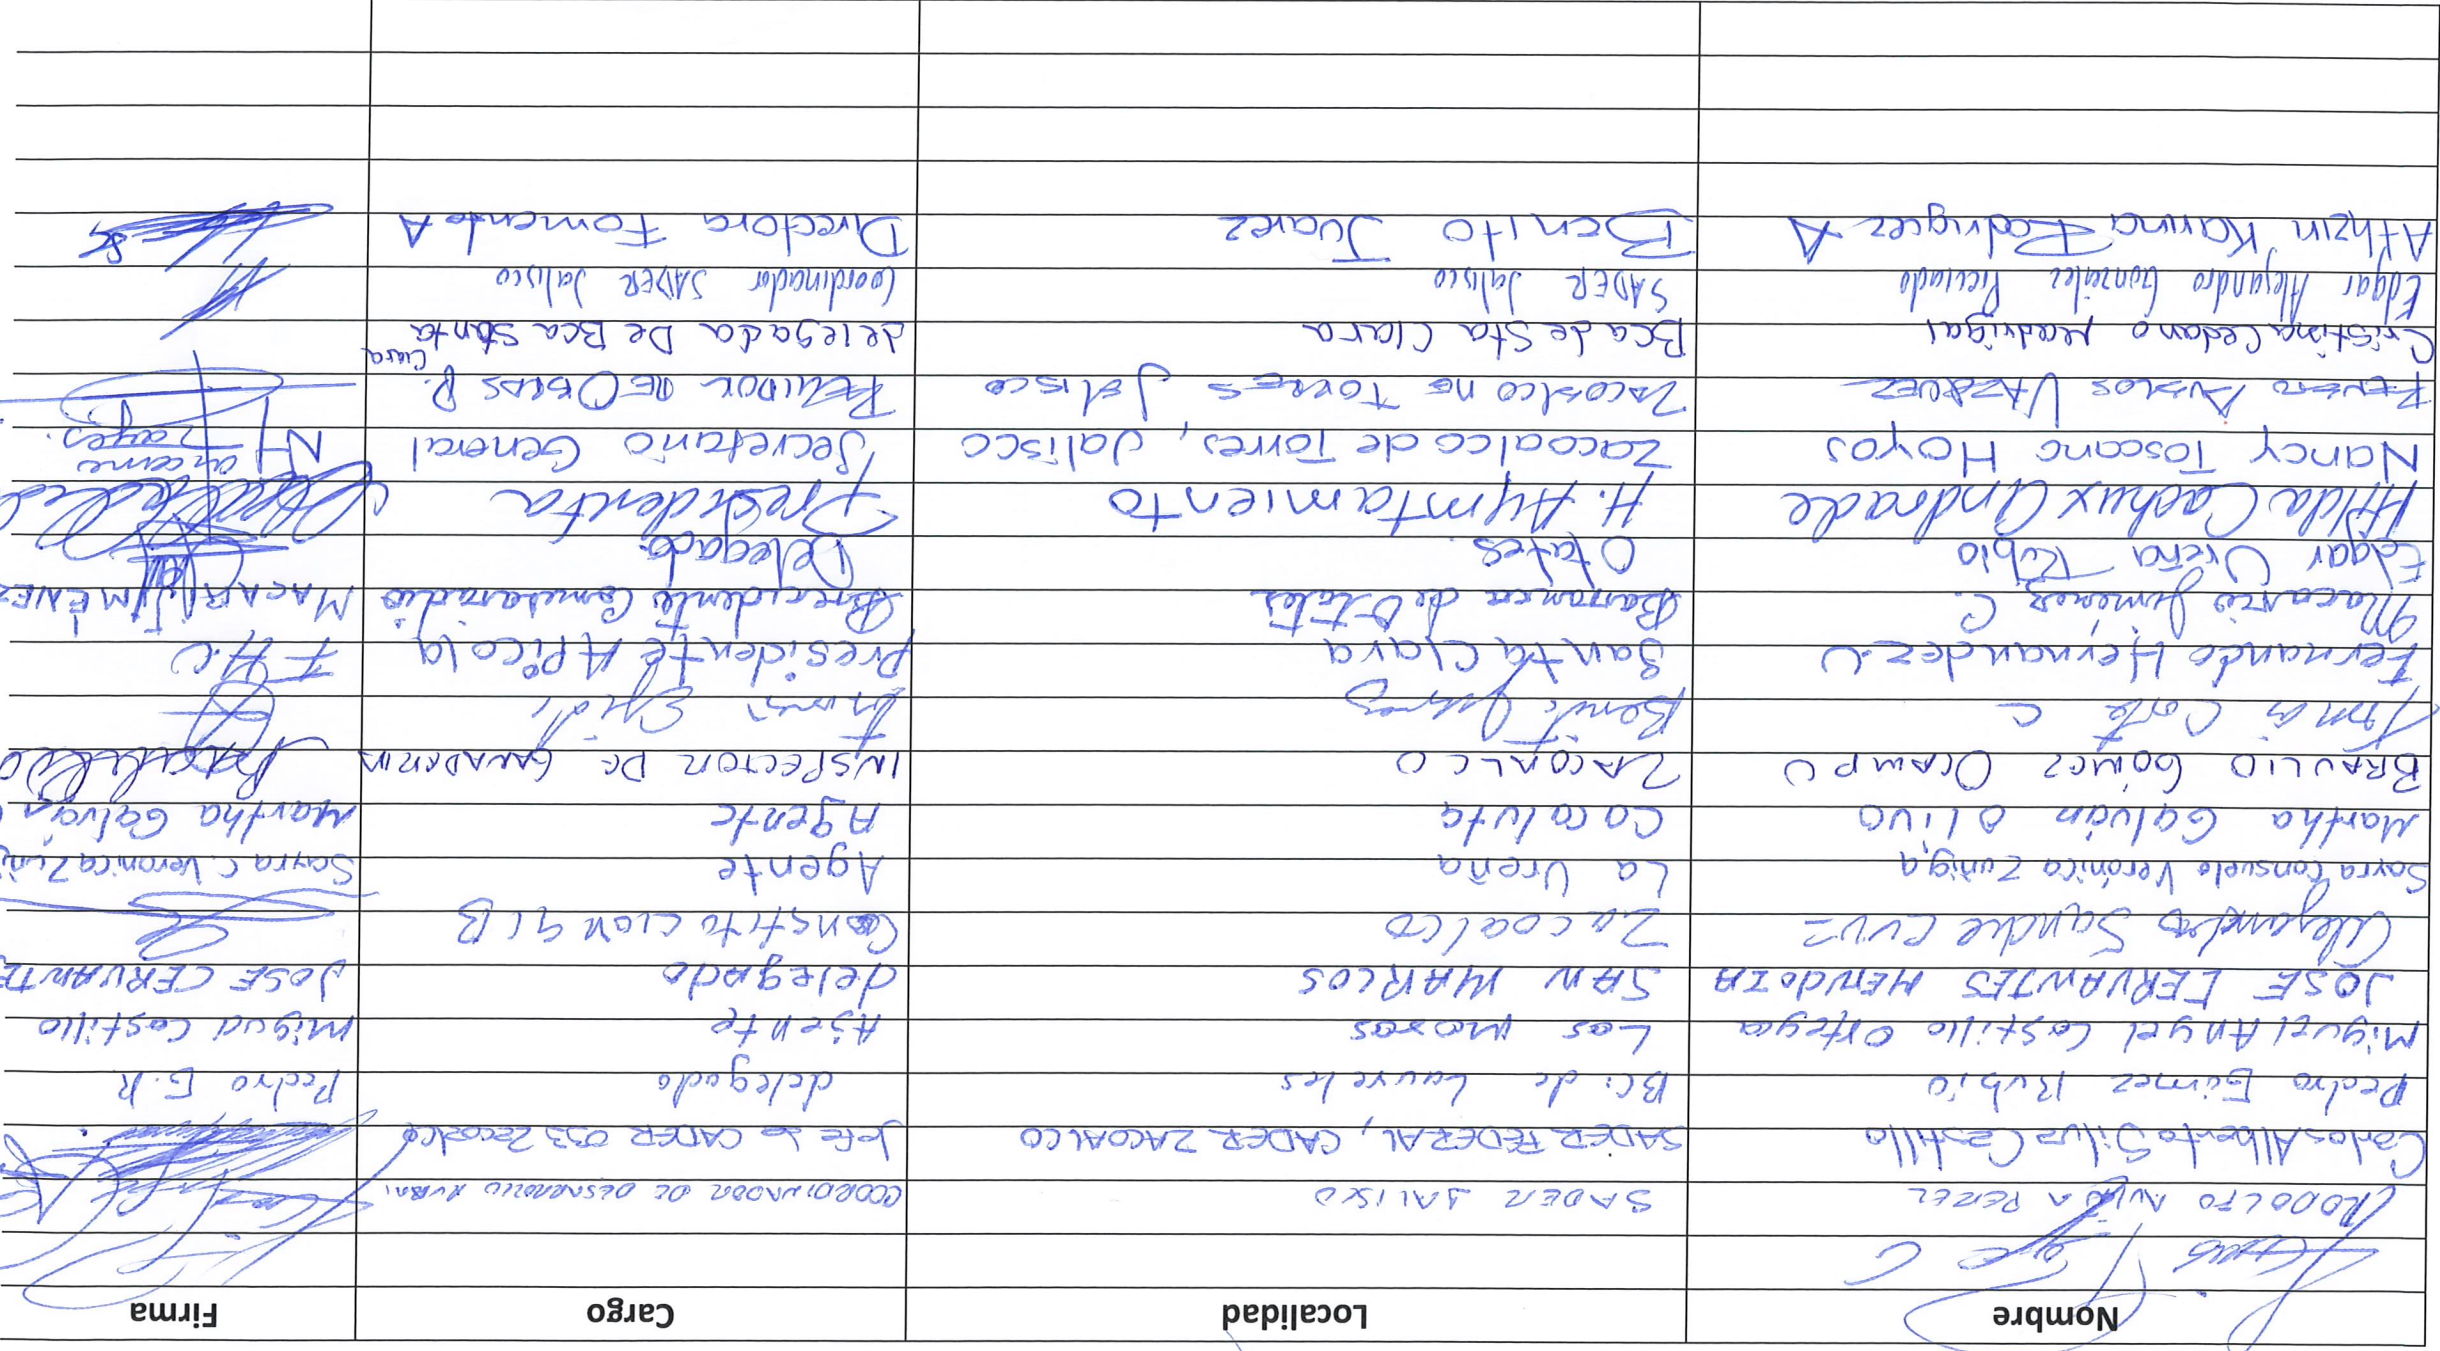 Nombre Localidad Cargo Firma
RODOLFO PEREZ SADER JALISCO COORDINADOR DE DESARROLLO RURAL
Carlos Alberto Silva Castillo SADER FEDERAL, CADER ZACOALCO Jefe de CADER 033 Zacoalco
Pedro Gómez Rubio Bci de Laureles delegado Pedro G.R
Miguel Angel Castillo Ortega Las moras Agente Miguel Castillo
JOSE CERVANTES MENDOZA SAN MARCOS delegado JOSE CERVANTE
Alejandro Sandre Cruz Zacoalco
Sayra Consuelo Verónica Zuñiga La Ureña Agente Sayra C. Veronica Zuñi
Martha Galván Olivo Cacaluta Agente Martha Galván
BRAULIO GÓMEZ OCAMPO ZACOALCO INSPECTOR DE GANADERIA
Tomás C Benito Juarez
Fernando Hernandez C Santa Clara Presidente Apicola F H.C
Macario Jimenez C. Barranca de Otates Precidente Comisariado MACARIO JIMENEZ
Edgar Ureña Rubio Otates. Delegado.
Hilda Cachux Andrade H. Ayuntamiento Presidenta
Nancy Toscano Hoyos Zacoalco de Torres, Jalisco Secretario General
RUBEN AVALOS VAZQUEZ ZACOALCO DE TORRES JALISCO REGIDOR DE OBRAS P.
Cristina Cedano Madrigal Bca de Sta Clara delegada De Bca Santa Clara
Edgar Alejandro González Preciado SADER Jalisco Coordinador SADER Jalisco
Athzin Karina Rodriguez A Benito Juarez Directora Fomento A